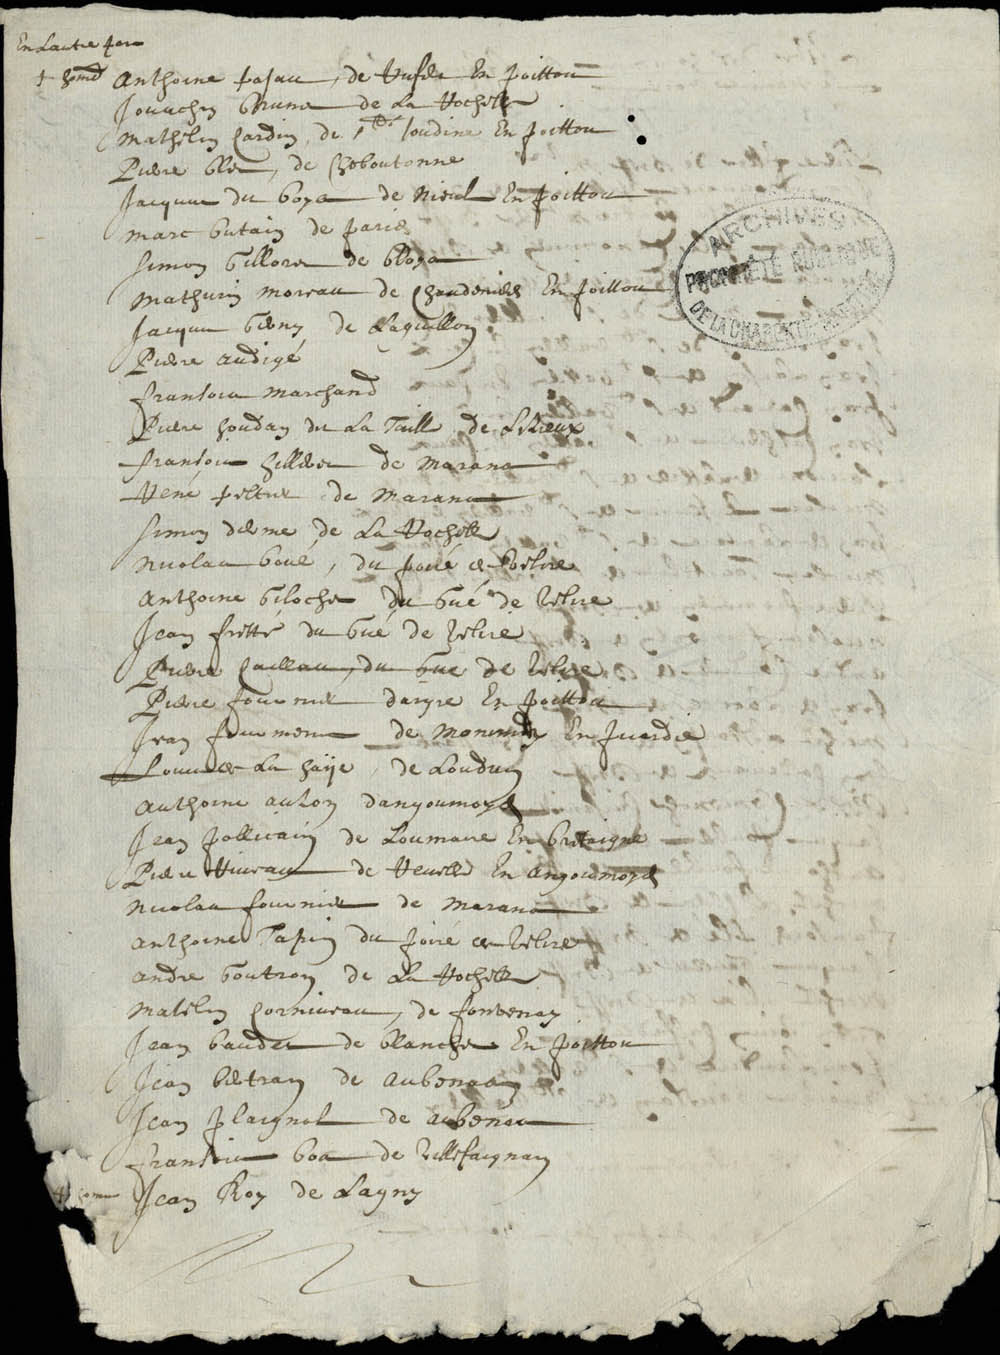 En Lautre
Anthoine pajau, de En poittou
Jouachin Brune de La Rochelle
Mathelin Cardin, de Loudine En poittou
Pierre Ble, de Cheboutonne
Jacques du Boys de Nieul En poittou
Marc Butain de paris
Simon Gillore de Bloys
Mathurin Moreau de Chaudenies En poittou
Jacques Geny de Laguillon
Pierre Audigé
fransois Marchand
Pierre houdan du La Taille de Lizieux
fransois hilleret de Marans
René peltie de Marans
Simon derme de La Rochelle
Nicolas Boué, du poiré de velire
Anthoine Giloche du Gué de velire
Jean frette du Gué de velire
Pierre Cailleau, du Gué de velire
Pierre fournie daryre En poittou
Jean fourmene de En picardie
Louis de La haije, de Loudun
Anthoine aulon dangoumoys
Jean pellicain de Loumaire En Bretaigne
Pierre Riveau de Reuelle En Angoumoys
Nicolas fournie de Marans
Anthoine Tapin du poiré de velire
André Goutron de La Rochelle
Matelin Corniveau, de fontenay
Jean Baudet de Blanche En poittou
Jean Bertran de Aubenas
Jean plaignol de aubenas
fransois Boa de villefaignan
Jean Roy de Lagny
ARCHIVES
PROPRIÉTÉ PUBLIQUE
DE LA CHARENTE-MARITIME